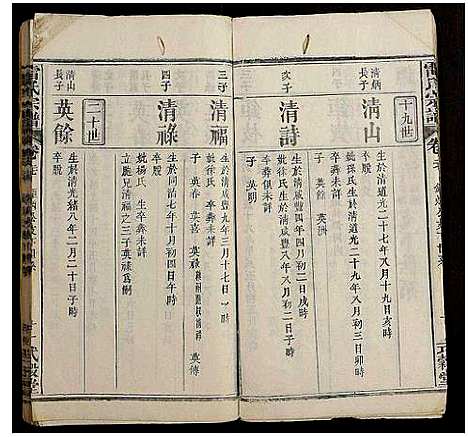 十九世
清炳
長子
清山
生於清道光二十七年八月十九日亥時
卒歿
妣朱氏生於清道光二十九年八月初三日卯時
卒葬未詳
子 英餘 英洲
次子
清詩
生於清咸豐四年四月初二日戌時
妣徐氏生於清咸豐八年八月初二日子時
卒葬未詳
子 英明
三子
清福
生於清咸豐九年三月十七日 時
妣徐氏 生卒葬未詳
子 英春 英喜 英祿 英傳
四子
清祿
生於同治七年十月初四日午時
妣楊氏 生卒葬未詳
立胞兄清福之三子英祿為嗣
二十世
清山
長子
英餘
生於清光緒八年二月二十日子時
卒歿
雷氏宗譜
卷
式穀堂